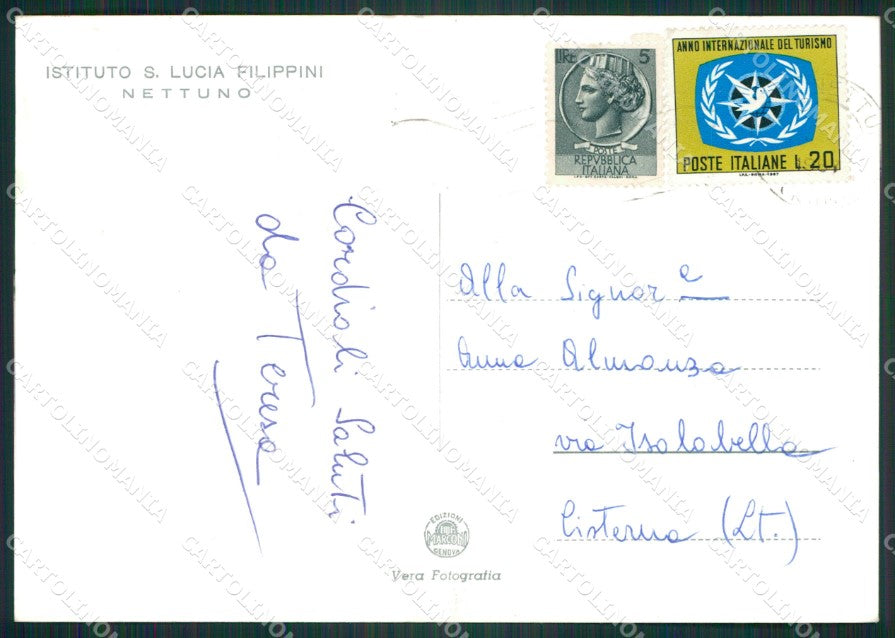 ISTITUTO S. LUCIA FILIPPINI
NETTUNO
LIRE 5
POSTE
REPVBBLICA
ITALIANA
ANNO INTERNAZIONALE DEL TURISMO
POSTE ITALIANE L. 20
I.P.S.-ROMA-1967
Cordiali Saluti
da Teresa
Alla Signora
Anna Almanza
via Isolabella
Cisterna (Lt.)
EDIZIONI
MARCONI
GENOVA
Vera Fotografia
CARTOLINOMANIA